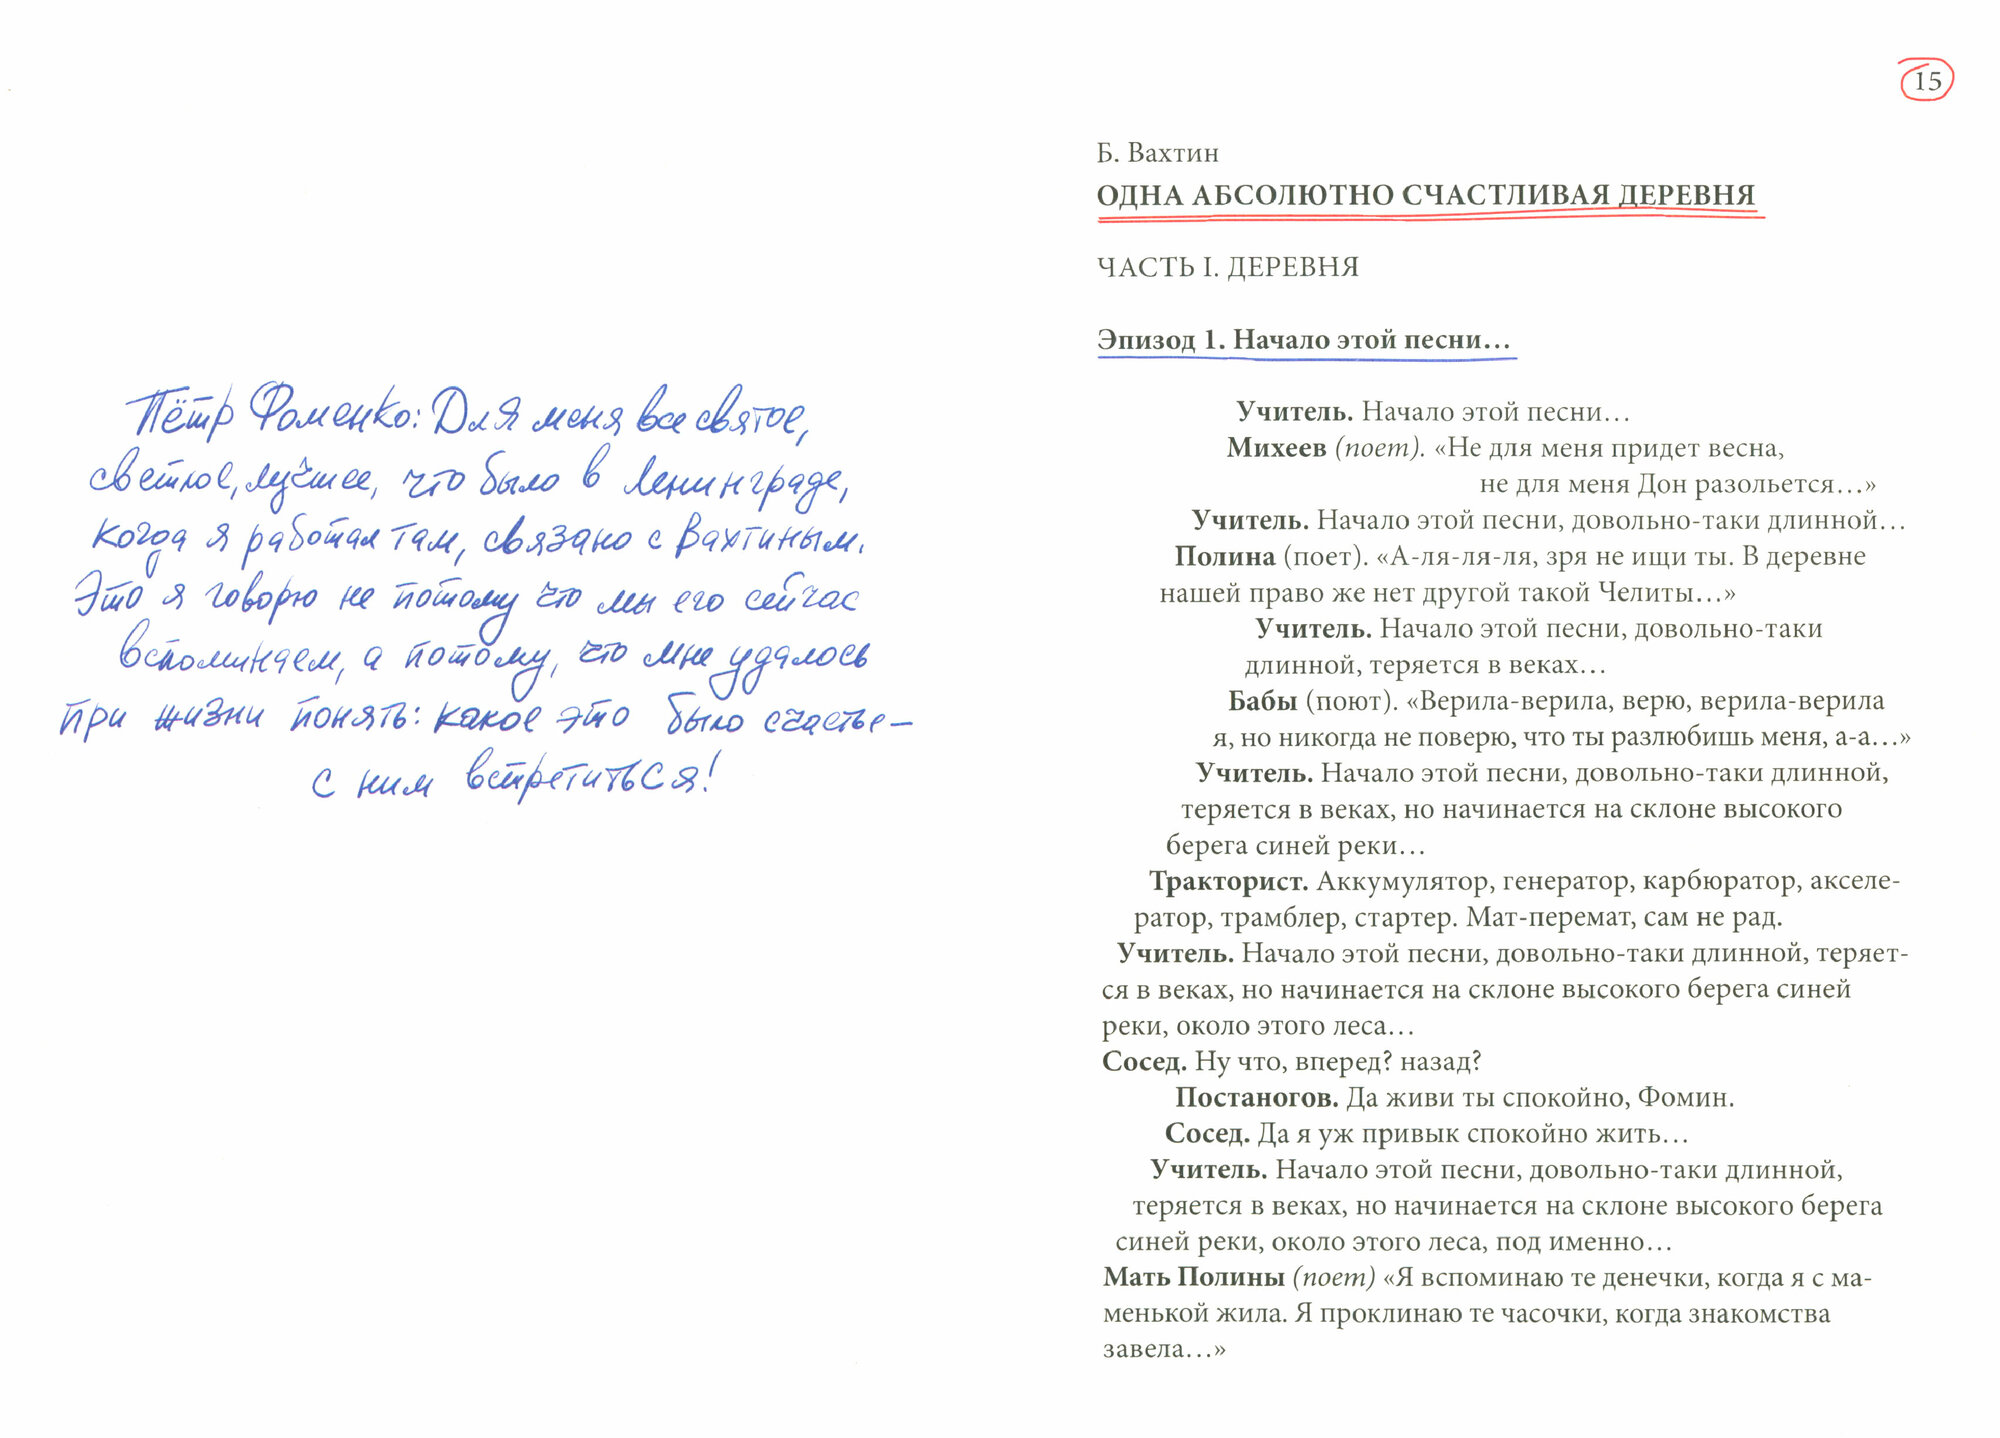 Пётр Фоменко: Для меня все святое,
светлое, лучшее, что было в Ленинграде,
когда я работал там, связано с Вахтиным.
Это я говорю не потому что мы его сейчас
вспоминаем, а потому, что мне удалось
при жизни понять: какое это было счастье –
с ним встретиться!
15
Б. Вахтин
ОДНА АБСОЛЮТНО СЧАСТЛИВАЯ ДЕРЕВНЯ
ЧАСТЬ I. ДЕРЕВНЯ
Эпизод 1. Начало этой песни…
Учитель. Начало этой песни…
Михеев (поет). «Не для меня придет весна,
не для меня Дон разольется…»
Учитель. Начало этой песни, довольно-таки длинной…
Полина (поет). «А-ля-ля-ля, зря не ищи ты. В деревне
нашей право же нет другой такой Челиты…»
Учитель. Начало этой песни, довольно-таки
длинной, теряется в веках…
Бабы (поют). «Верила-верила, верю, верила-верила
я, но никогда не поверю, что ты разлюбишь меня, а-а…»
Учитель. Начало этой песни, довольно-таки длинной,
теряется в веках, но начинается на склоне высокого
берега синей реки…
Тракторист. Аккумулятор, генератор, карбюратор, акселе-
ратор, трамблер, стартер. Мат-перемат, сам не рад.
Учитель. Начало этой песни, довольно-таки длинной, теряет-
ся в веках, но начинается на склоне высокого берега синей
реки, около этого леса…
Сосед. Ну что, вперед? назад?
Постаногов. Да живи ты спокойно, Фомин.
Сосед. Да я уж привык спокойно жить…
Учитель. Начало этой песни, довольно-таки длинной,
теряется в веках, но начинается на склоне высокого берега
синей реки, около этого леса, под именно…
Мать Полины (поет) «Я вспоминаю те денечки, когда я с ма-
менькой жила. Я проклинаю те часочки, когда знакомства
завела…»